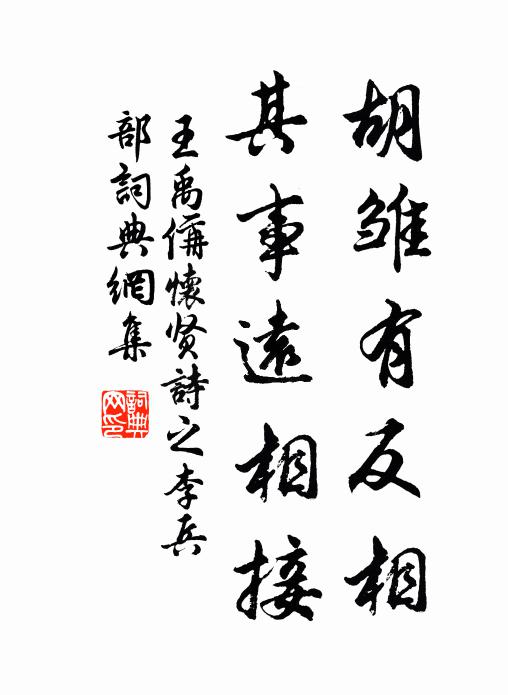 胡雏有反相
其事遠相接
王禹偁懷贤詩之李兵
部詞典網集
詞典网印